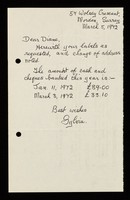 54 Wolsey Crescent,
Morden, Surrey
March 5, 1972
Dear Diana,
Herewith your labels as
requested, and change of address
noted.
The amount of cash and
cheques banked this year is:-
Jan 11, 1972 £39.00
March 3, 1972 £ 33.10
Best wishes
Sylvia.